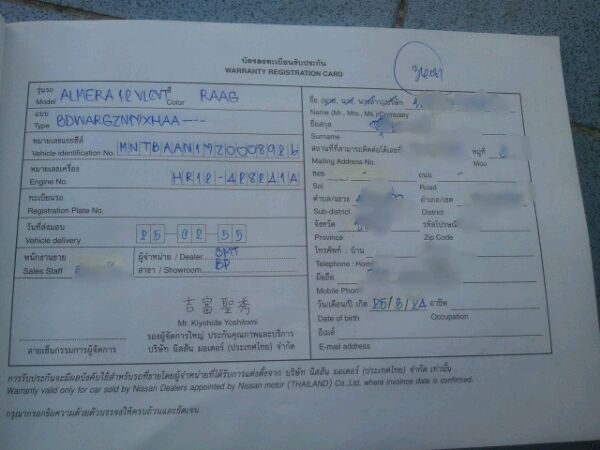 บัตรลงทะเบียนรับประกัน
WARRANTY REGISTRATION CARD
รุ่นรถ
Model ALMERA 1.2 VL CVT
สี
Color RAAG
แบบ
Type BDWARGZNMXHAA----
หมายเลขแชสซีส์
Vehicle identification No. MNTBAAN17Z0008926
หมายเลขเครื่อง
Engine No. HR12-428241A
ทะเบียนรถ
Registration Plate No.
วันที่ส่งมอบ
Vehicle delivery 25-02-55
พนักงานขาย
Sales Staff
ผู้จำหน่าย / Dealer SMT
สาขา / Showroom BP
吉富聖秀
Mr. Kiyohide Yoshitomi
รองผู้จัดการใหญ่ ประกันคุณภาพและบริการ
ลายเซ็นกรรมการผู้จัดการ บริษัท นิสสัน มอเตอร์ (ประเทศไทย) จำกัด
ชื่อ (นาย, นาง, นางสาว)/บริษัท
Name (Mr., Mrs., Ms.)/Company
ชื่อสกุล
Surname
สถานที่ที่สามารถติดต่อได้เลขที่ หมู่ที่
Mailing Address No. Moo
ซอย ถนน
Soi Road
ตำบล/แขวง อำเภอ/เขต
Sub-district District
จังหวัด รหัสไปรษณีย์
Province Zip Code
โทรศัพท์ : บ้าน
Telephone : Home
มือถือ
Mobile Phone
วัน/เดือน/ปี เกิด 25/5/24 อาชีพ
Date of birth Occupation
อีเมล์
E-mail address
การรับประกันจะมีผลบังคับใช้สำหรับรถที่ขายโดยผู้จำหน่ายที่ได้รับการแต่งตั้งจาก บริษัท นิสสัน มอเตอร์ (ประเทศไทย) จำกัด เท่านั้น
Warranty valid only for car sold by Nissan Dealers appointed by Nissan motor (THAILAND) Co.,Ltd. where invoince date is confirmed.
กรุณากรอกข้อความด้วยตัวบรรจงให้ครบถ้วนและชัดเจน